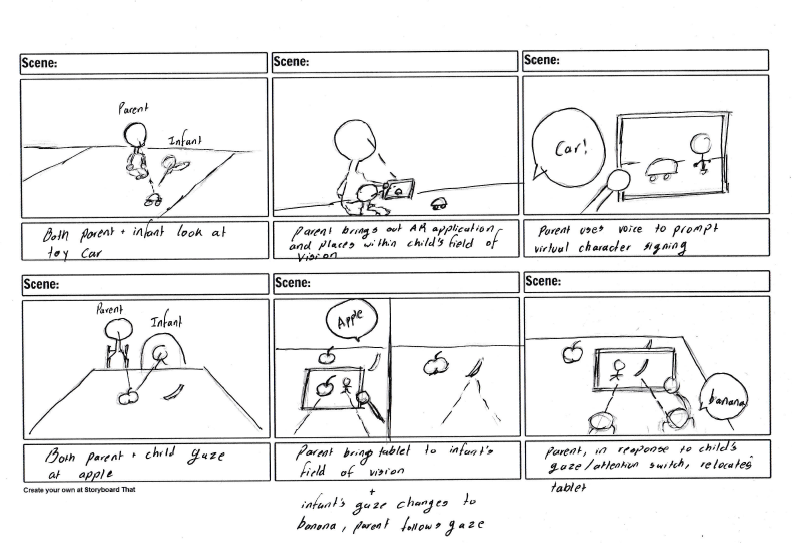 Scene:
Scene:
Scene:
Parent
Infant
Car!
Both parent + infant look at
toy car
Parent brings out AR application
and places within child's field of
vision
Parent uses voice to prompt
virtual character signing
Scene:
Scene:
Scene:
Parent
Infant
Apple
banana
Both parent + child gaze
at apple
Parent brings tablet to infant's
field of vision
+
infant's gaze changes to
banana, parent follows gaze
Parent, in response to child's
gaze/attention switch, relocates
tablet
Create your own at Storyboard That